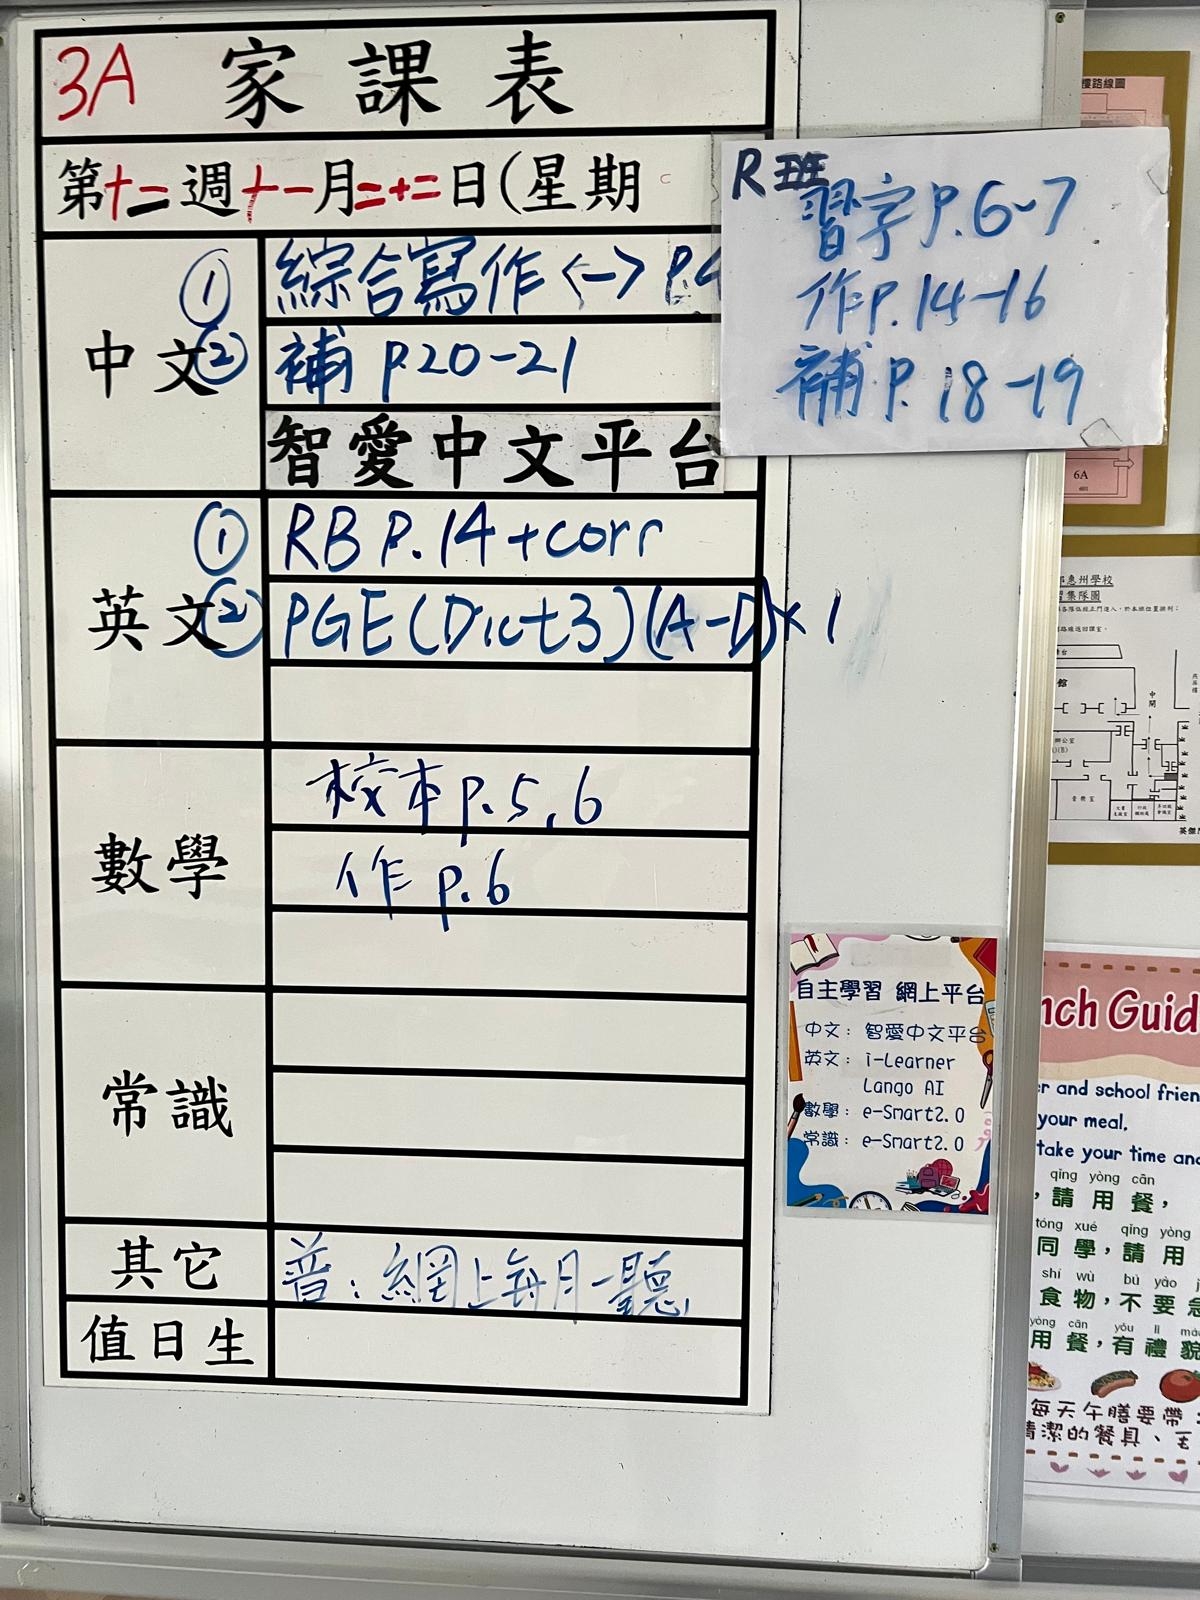 3A 家課表
第十二週十一月二十二日(星期
中文
① 綜合寫作<一> P.4
② 補 P.20-21
智愛中文平台
R班
習字 P.6~7
作P.14-16
補P.18-19
英文
① RB P.14+corr
② PGE(Dict3)(A-D)×1
數學
校本p.5,6
作p.6
常識
其它
普:網上每月一聽
值日生
自主學習 網上平台
中文: 智愛中文平台
英文: i-Learner
Lango AI
數學: e-Smart2.0
常識: e-Smart2.0
樓路線圖
6A
惠州學校
集隊圖
中閘
音樂室
nch Guid
er and school frien
your meal,
take your time and
qǐng yòng cān
,請用餐,
tóng xué qǐng yòng
同學,請用
shí wù bù yào j
食物,不要急
yòng cān yǒu lǐ mào
用餐,有禮貌
每天午膳要帶:
清潔的餐具、